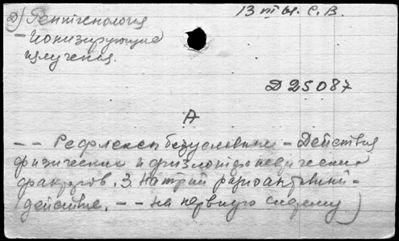 2) Рентгенология 13 т ы. С. В.
– Ионизирующие
излучения.
Д 25087
А
– – Рефлексы безусловные – Действия
физических и физ
факторов. 3. Натрий радиоактивный –
(действие. – – на нервную систему)